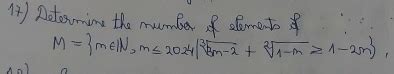 17) Determine the number of elements of
M = {m∈ℕ, m ≤ 2024 | ∛(8m-2) + ∛(1-m) ≥ 1-2m},